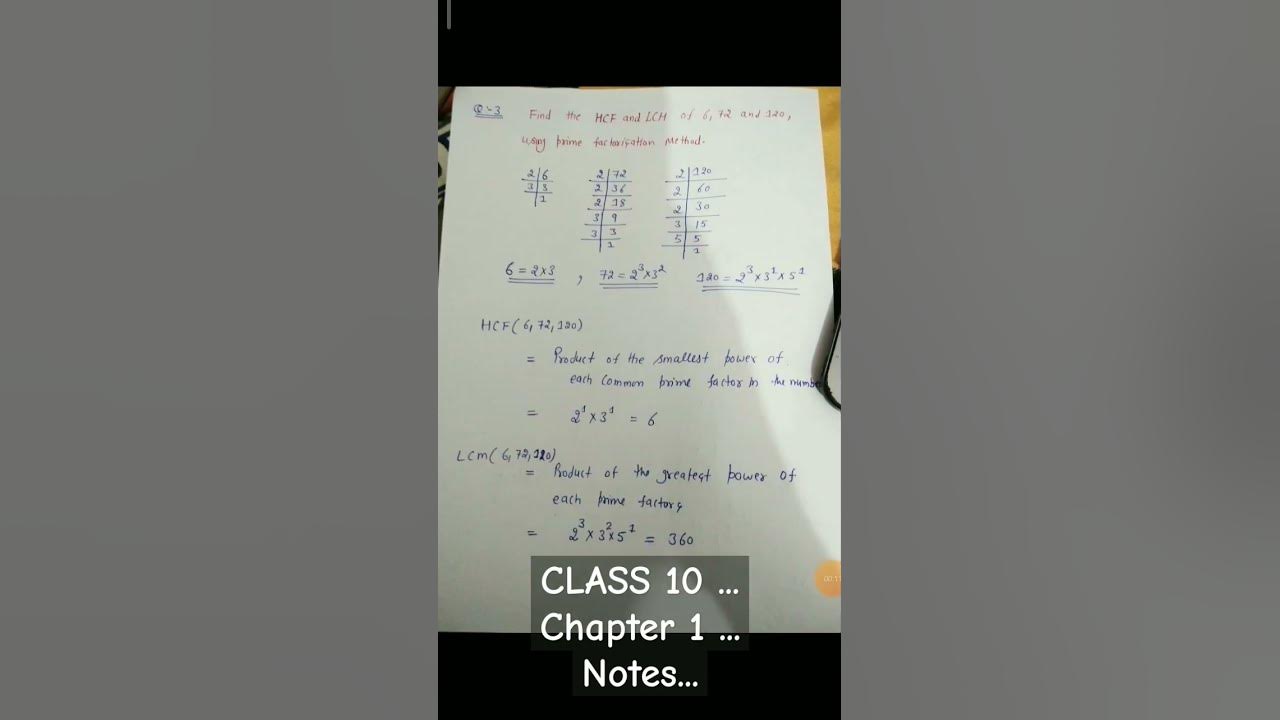 Q-3 Find the HCF and LCM of 6, 72 and 120,
using prime factorization Method.
2 | 6
3 | 3
1
2 | 72
2 | 36
2 | 18
3 | 9
3 | 3
1
2 | 120
2 | 60
2 | 30
3 | 15
5 | 5
1
6 = 2×3 , 72 = 2³×3² 120 = 2³×3¹×5¹
HCF(6, 72, 120)
= Product of the smallest power of
each Common prime factor in the numbe
= 2¹×3¹ = 6
LCM(6, 72, 120)
= Product of the greatest power of
each prime factors
= 2³×3²×5¹ = 360
CLASS 10 ...
Chapter 1 ...
Notes...